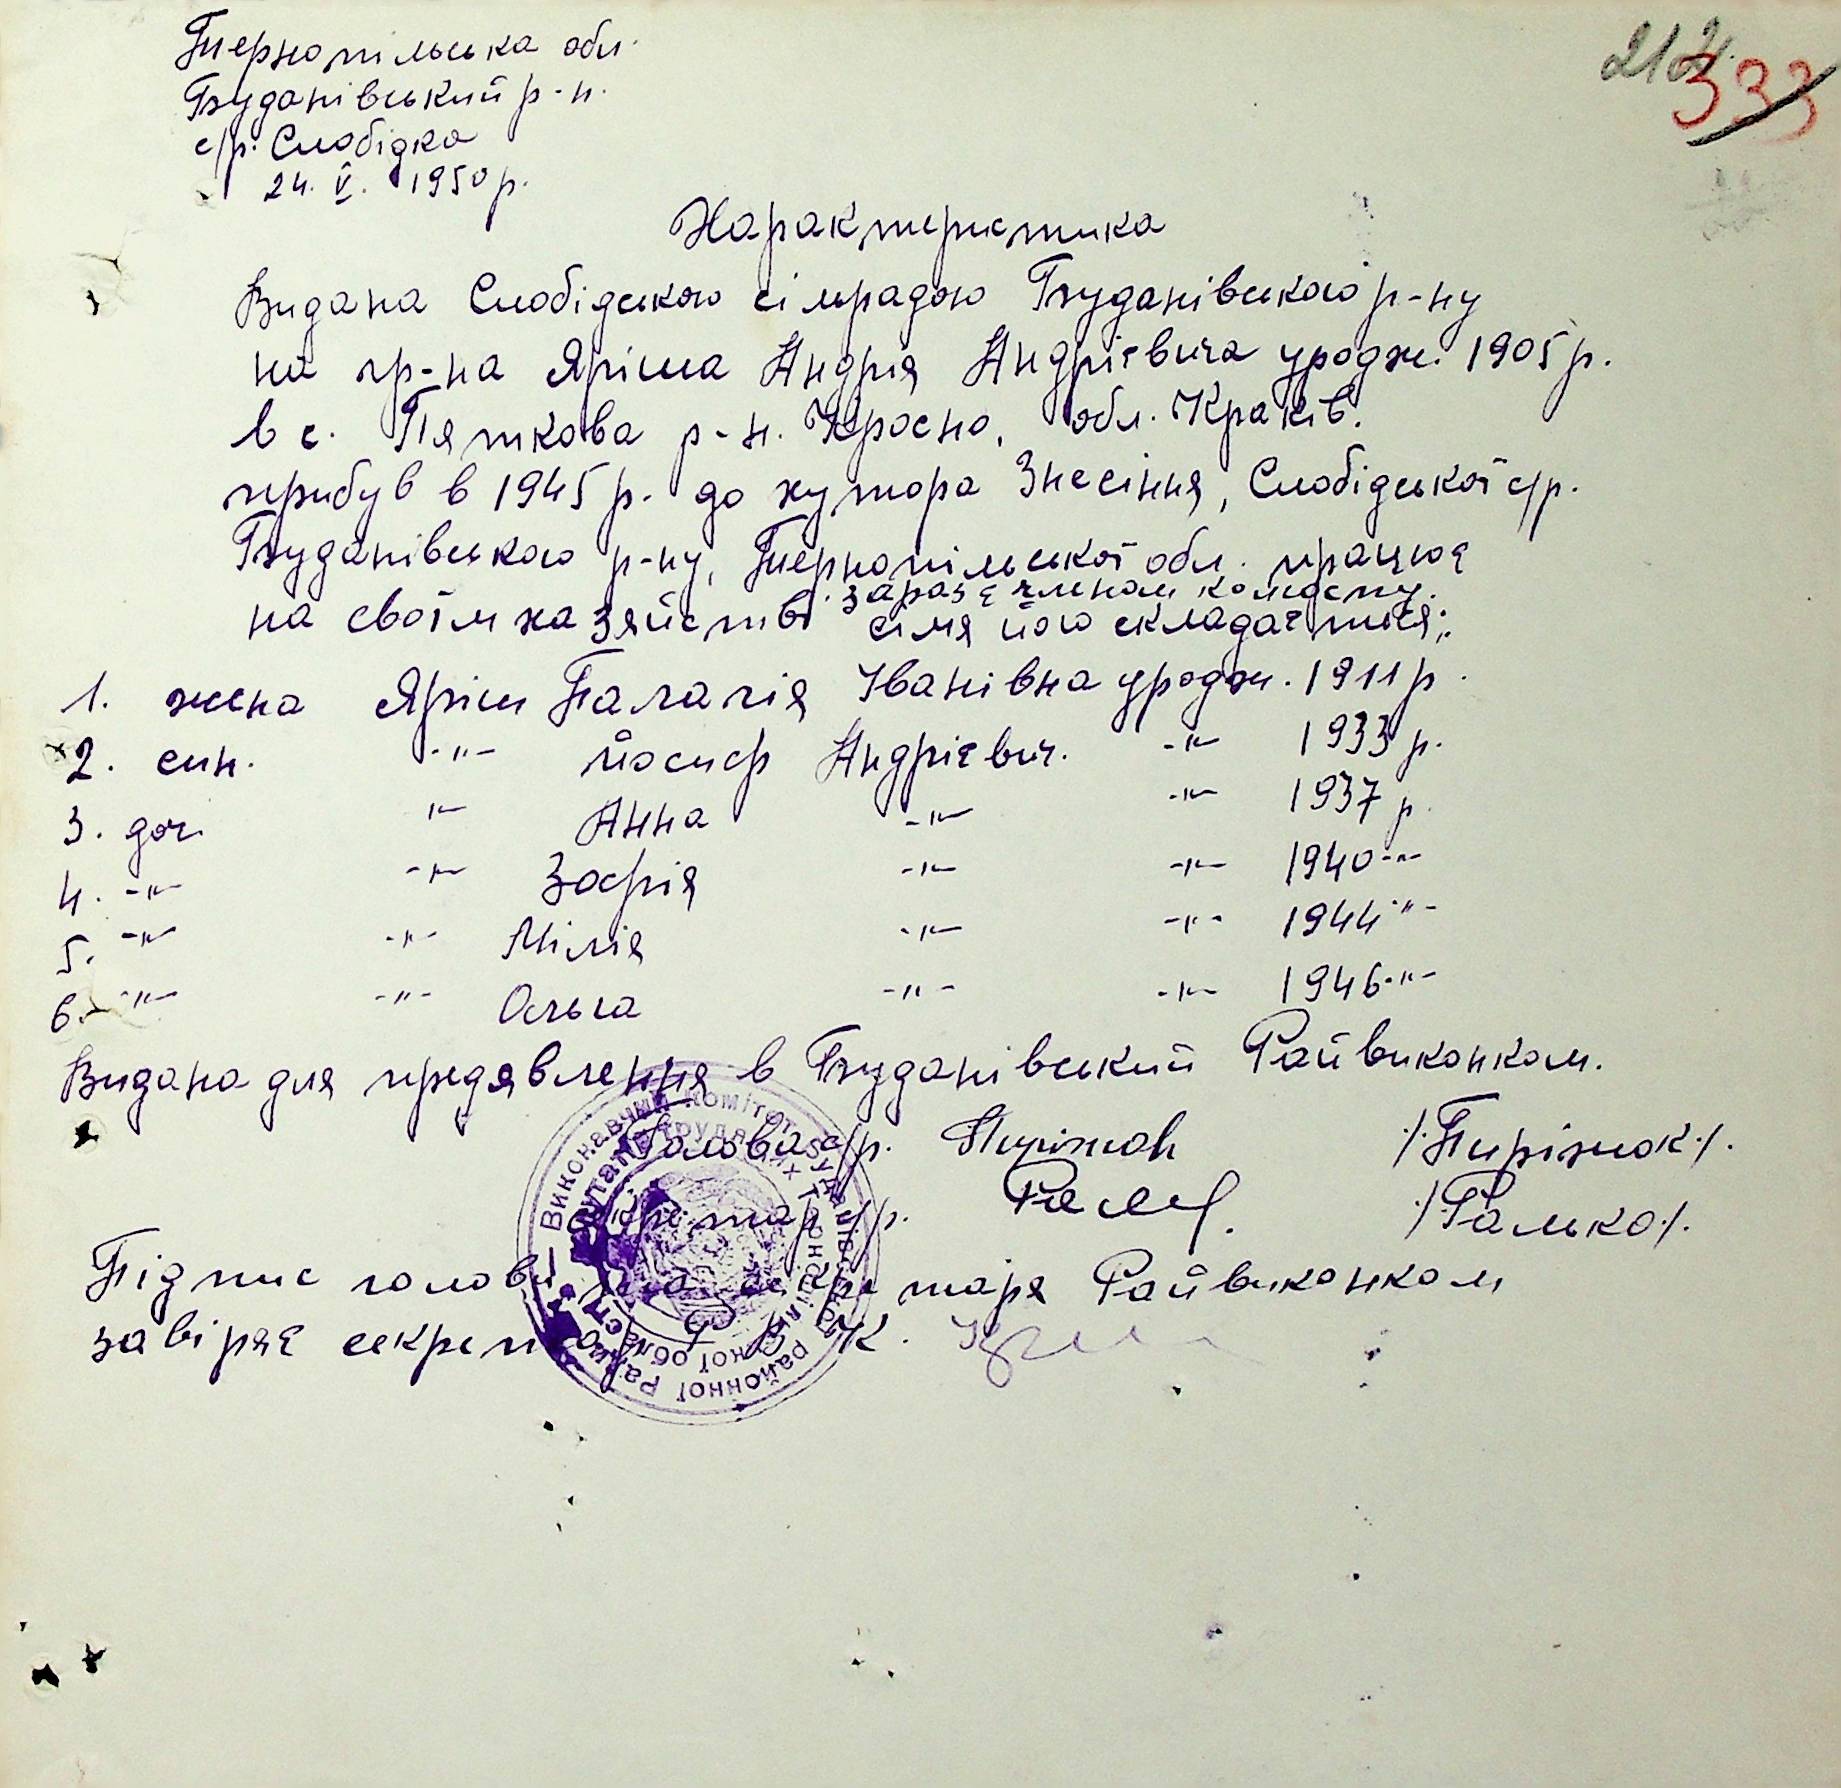 212.
333
Тернопільська обл.
Буданівський р-н.
с/р. Слобідка
24. V. 1950 р.
Характеристика
Видана Слобідською сільрадою Буданівського р-ну
на гр-на Яріша Андрія Андрієвича уродж. 1905 р.
в с. Пяткова р-н. Кросно, обл. Краків.
прибув в 1945 р. до хутора Знесіння, Слобідської с/р.
Буданівського р-ну, Тернопільської обл. працює
на своїм хазяйстві. зараз є членом колгоспу.
сімя його складається:
1. жена Яріш Палагія Іванівна уродж. 1911 р.
2. син. -"- Йосиф Андрієвич. -"- 1933 р.
3. доч. -"- Анна -"- -"- 1937 р.
4. -"- -"- Зофія -"- -"- 1940 -"-
5. -"- -"- Мілія -"- -"- 1944 -"-
6. -"- -"- Ольга -"- -"- 1946 -"-
Видана для предявлення в Буданівський Райвиконком.
Голова с/р. /Пиріжок/.
Секретар с/р. /Ралько/.
Підпис голови та секретаря Райвиконком
завіряє секретар Р В К.
Виконавчий комітет Буданівської районної Ради депутатів трудящих Тернопільської області